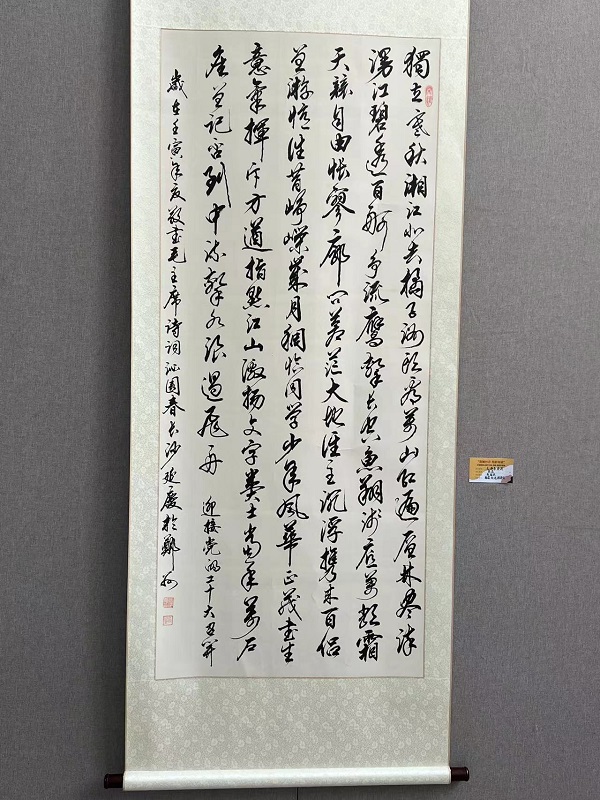 獨立寒秋湘江北去橘子洲頭看萬山紅遍層林盡染
漫江碧透百舸爭流鷹擊長空魚翔淺底萬類霜
天競自由悵寥廓問蒼茫大地誰主沉浮攜來百侶
曾游憶往昔崢嶸歲月稠恰同學少年風華正茂書生
意氣揮斥方遒指點江山激揚文字糞土當年萬戶
侯曾記否到中流擊水浪遏飛舟 迎接党的二十大召開
歲在壬寅年夏敬書毛主席詩詞沁園春長沙延慶於鄭州